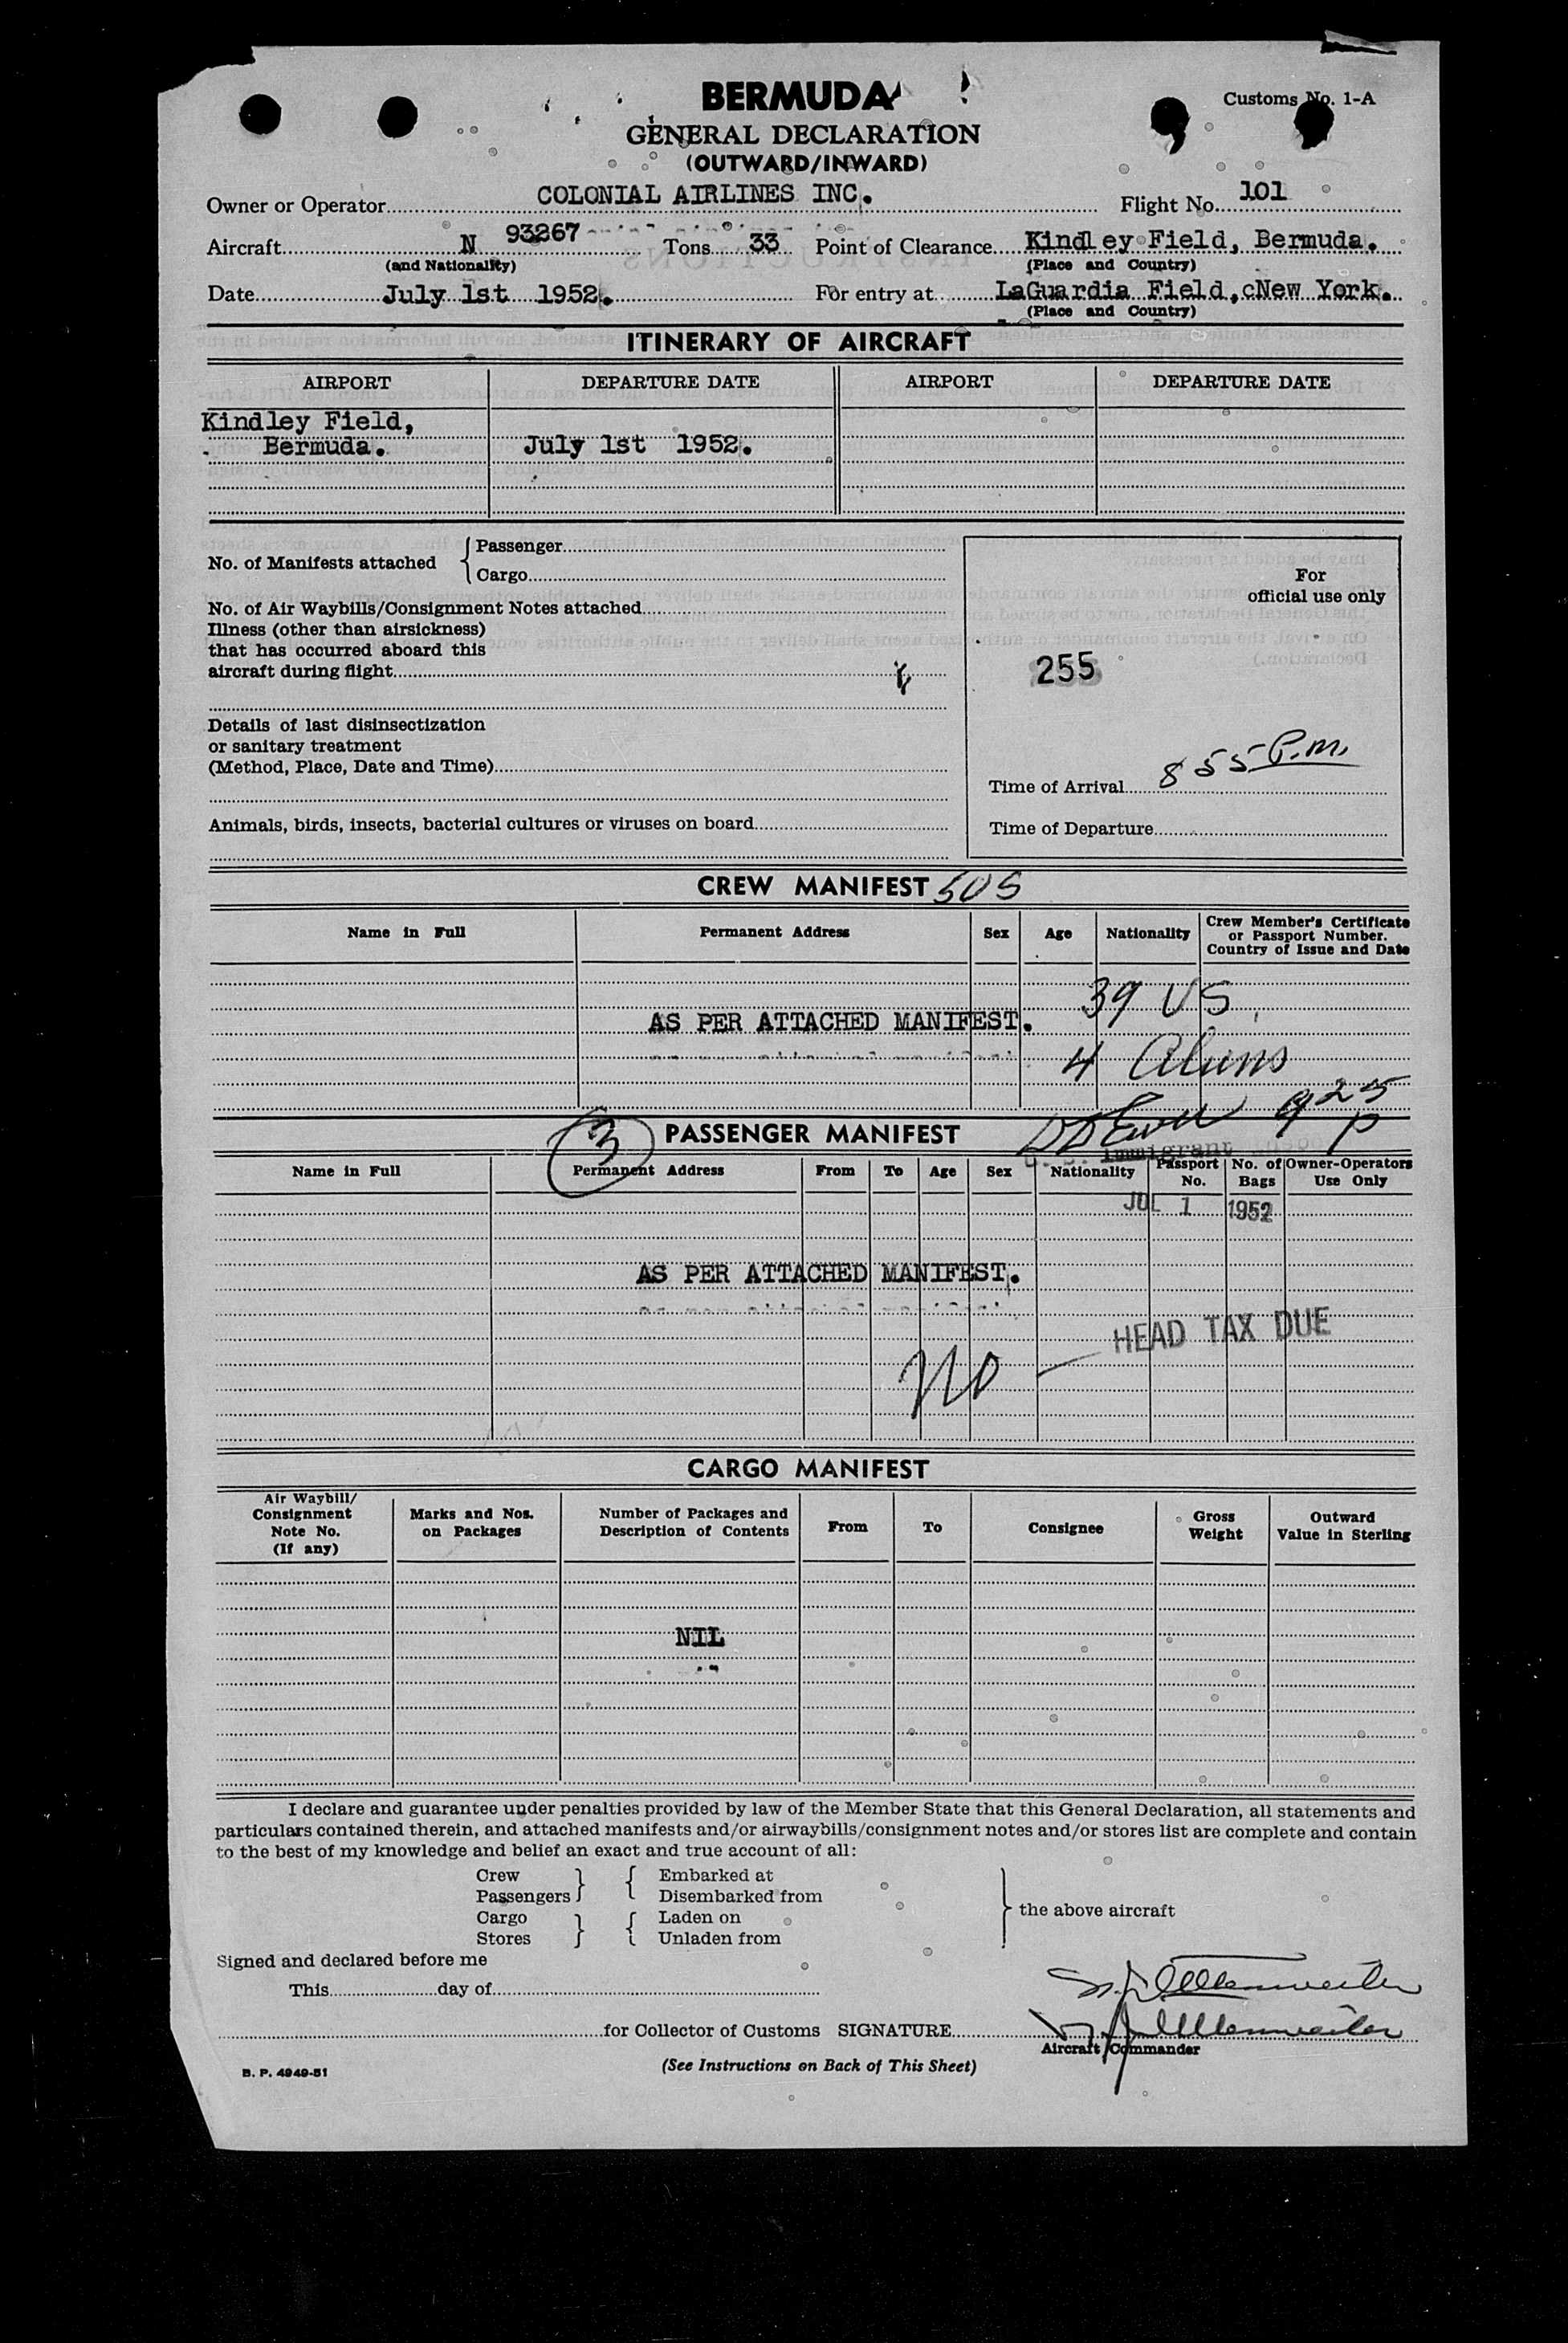 BERMUDA
Customs No. 1-A
GENERAL DECLARATION
(OUTWARD/INWARD)
Owner or Operator COLONIAL AIRLINES INC. Flight No. 101
Aircraft N 93267 Tons 33 Point of Clearance Kindley Field, Bermuda.
(and Nationality) (Place and Country)
Date July 1st 1952. For entry at LaGuardia Field,cNew York.
(Place and Country)
ITINERARY OF AIRCRAFT
AIRPORT DEPARTURE DATE AIRPORT DEPARTURE DATE
Kindley Field,
Bermuda. July 1st 1952.
No. of Manifests attached { Passenger
Cargo
For
official use only
No. of Air Waybills/Consignment Notes attached
Illness (other than airsickness)
that has occurred aboard this
aircraft during flight
255
Details of last disinsectization
or sanitary treatment
(Method, Place, Date and Time)
Time of Arrival 8 55 P.m.
Animals, birds, insects, bacterial cultures or viruses on board
Time of Departure
CREW MANIFEST 505
Name in Full Permanent Address Sex Age Nationality Crew Member's Certificate
or Passport Number.
Country of Issue and Date
39 US
AS PER ATTACHED MANIFEST.
4 Aliens
925
P
3 PASSENGER MANIFEST
Immigrant
Name in Full Permanent Address From To Age Sex Nationality Passport No. No. of Bags Owner-Operators Use Only
JUL 1 1952
AS PER ATTACHED MANIFEST.
NO — HEAD TAX DUE
CARGO MANIFEST
Air Waybill/
Consignment
Note No.
(If any)
Marks and Nos.
on Packages
Number of Packages and
Description of Contents
From To Consignee
Gross
Weight
Outward
Value in Sterling
NIL
I declare and guarantee under penalties provided by law of the Member State that this General Declaration, all statements and
particulars contained therein, and attached manifests and/or airwaybills/consignment notes and/or stores list are complete and contain
to the best of my knowledge and belief an exact and true account of all:
Crew } { Embarked at
Passengers } { Disembarked from
} the above aircraft
Cargo } { Laden on
Stores } { Unladen from
Signed and declared before me
This day of
for Collector of Customs SIGNATURE
Aircraft Commander
(See Instructions on Back of This Sheet)
B. P. 4949-51